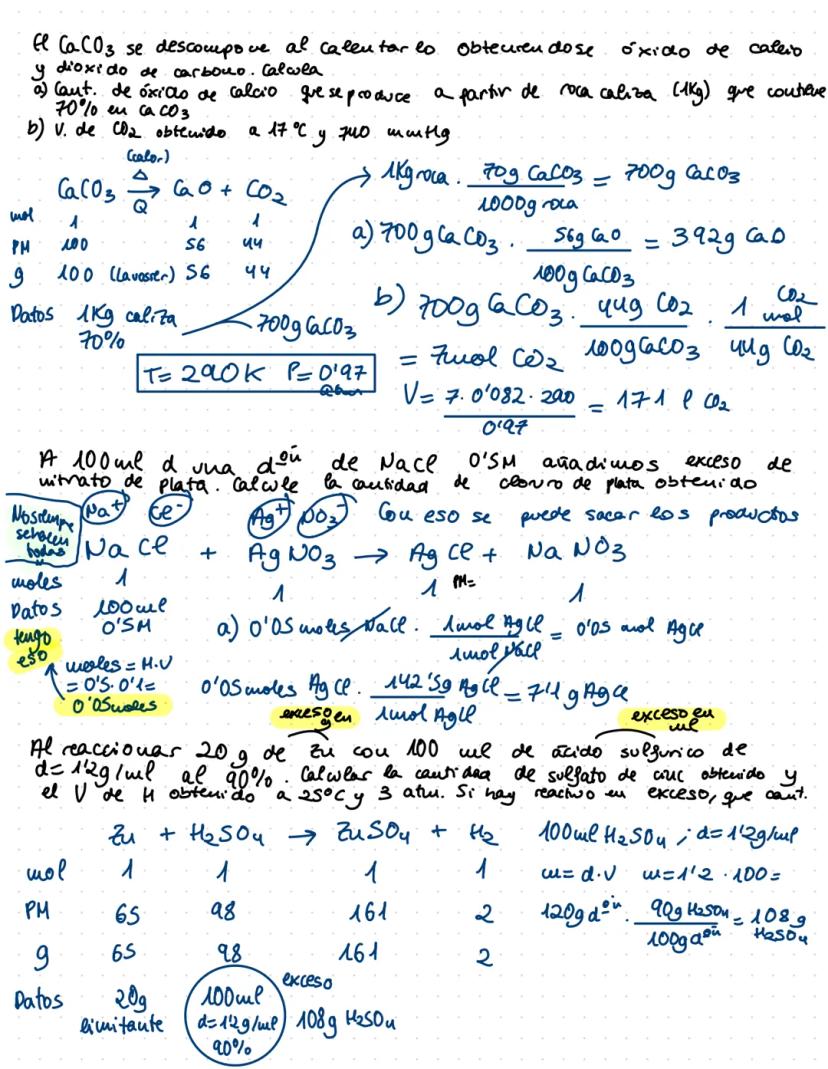 El CaCO3 se descompone al calentarlo obteniendose óxido de calcio
y dioxido de carbono. Calcula
a) Cant. de óxido de calcio que se produce a partir de roca caliza (1Kg) que contiene
70% en CaCO3
b) V. de CO2 obtenido a 17ºC y 740 mmHg
(calor)
CaCO3 →Δ Q CaO + CO2
mol 1 1 1
PM 100 56 44
g 100 (lavasier) 56 44
Datos 1Kg caliza 700g CaCO3
70%
T= 290K P= 0'97
atm
1Kg roca . 70g CaCO3 / 1000g roca = 700g CaCO3
a) 700g CaCO3 . 56g CaO / 100g CaCO3 = 392g CaO
b) 700g CaCO3 . 44g CO2 / 100g CaCO3 . 1 mol CO2 / 44g CO2
= 7mol CO2
V= 7. 0'082. 290 / 0'97 = 171 l CO2
A 100ml d una dºⁿ de NaCl 0'5M añadimos exceso de
nitrato de plata. Calcule la cantidad de cloruro de plata obtenido
No siempre
se hacen
todas
Na+ Cl- Ag+ NO3- Con eso se puede sacar los productos
NaCl + AgNO3 → AgCl + NaNO3
moles 1 1 1 PM= 1
Datos 100ml
0'5M
tengo
eso
moles = M.V
= 0'5. 0'1=
0'05moles
a) 0'05 moles NaCl . 1mol AgCl / 1mol NaCl = 0'05 mol AgCl
0'05moles AgCl . 142'5g AgCl / 1mol AgCl = 7'1 g AgCl
exceso en
g
exceso en
ml
Al reaccionar 20 g de Zn con 100 ml de ácido sulfurico de
d= 1'2g/ml al 90%. Calcular la cantidad de sulfato de cinc obtenido y
el V de H obtenido a 25ºC y 3 atm. Si hay reactivo en exceso, que cant.
Zn + H2SO4 → ZnSO4 + H2
mol 1 1 1 1
PM 65 98 161 2
g 65 98 161 2
Datos 20g
limitante
100ml
d= 1'2g/ml
90%
exceso
108g H2SO4
100ml H2SO4 ; d= 1'2g/ml
m= d.V m= 1'2 . 100=
120g dºⁿ . 90g H2SO4 / 100g dºⁿ = 108g H2SO4